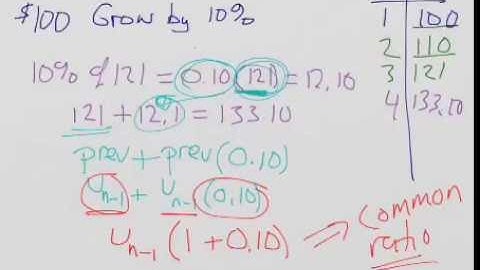 $100 Grow by 10%
10% of 121 = (0.10)(121) = 12.10
121 + 12.1 = 133.10
prev + prev(0.10)
Un-1 + Un-1 (0.10)
Un-1 (1+0.10) ⇒ common ratio
1 100
2 110
3 121
4 133.10